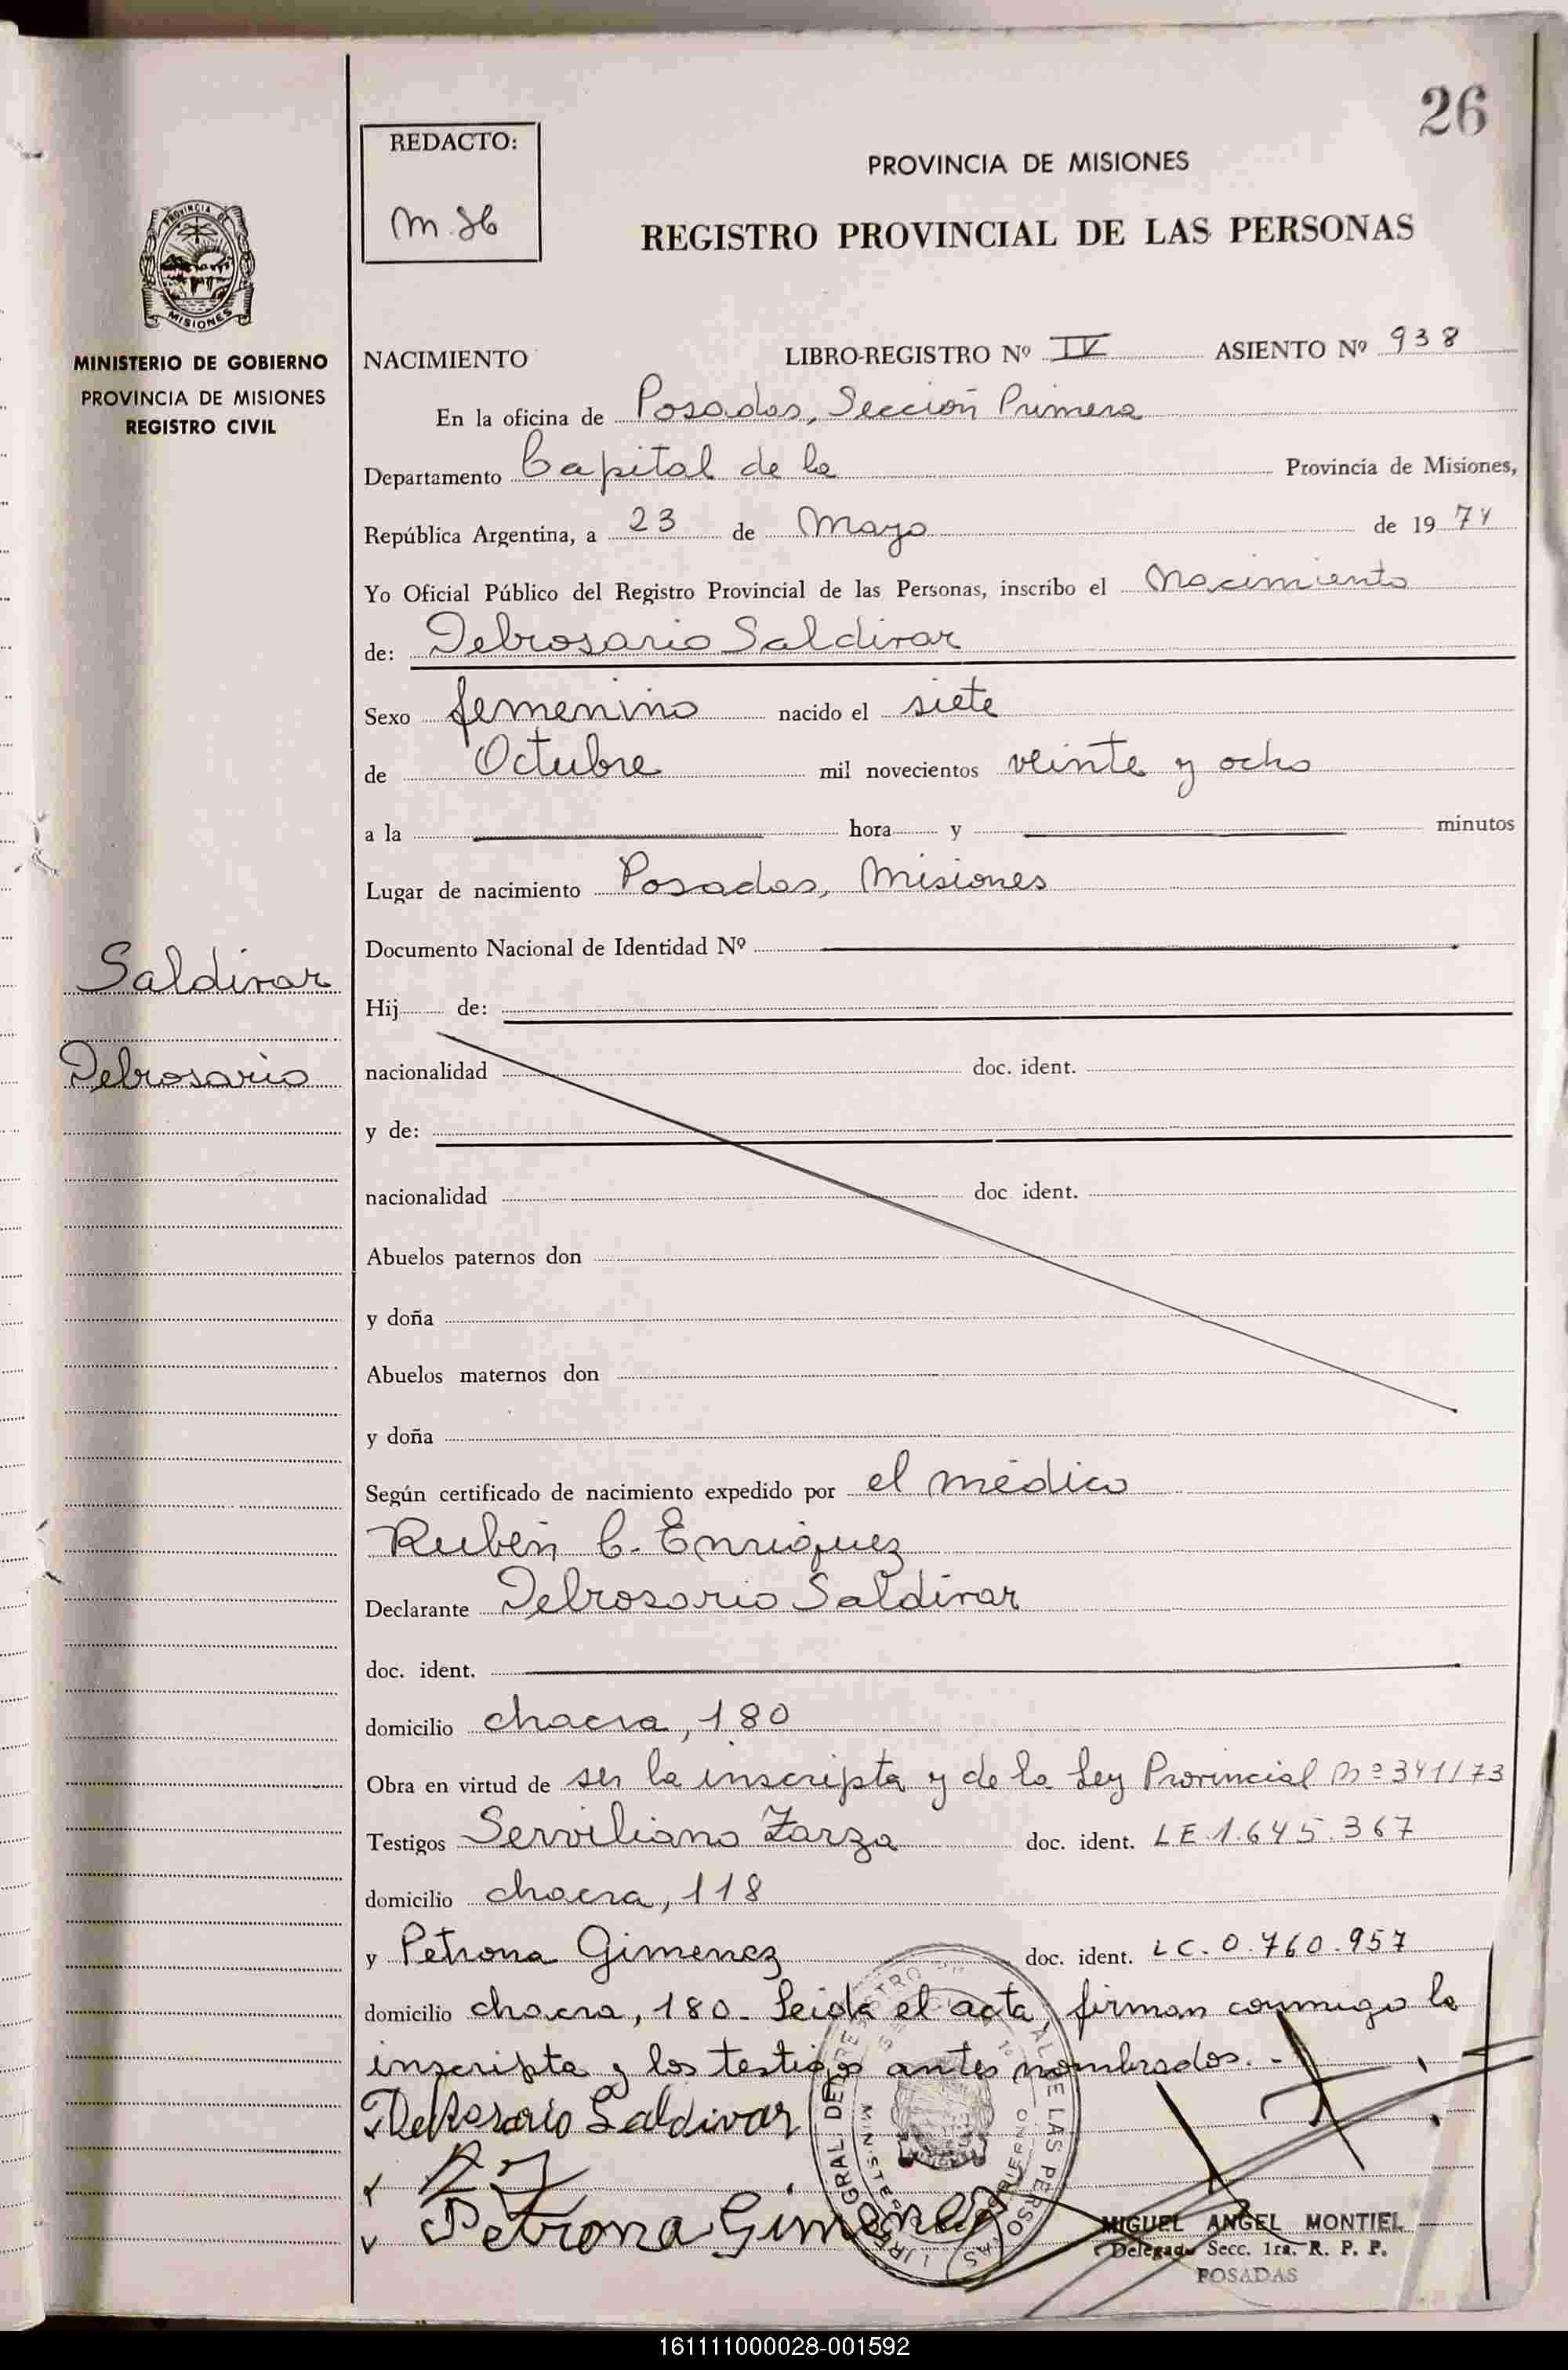 26
REDACTO:
PROVINCIA DE MISIONES
REGISTRO PROVINCIAL DE LAS PERSONAS
PROVINCIA DE
MISIONES
MINISTERIO DE GOBIERNO
PROVINCIA DE MISIONES
REGISTRO CIVIL
NACIMIENTO LIBRO-REGISTRO Nº IV ASIENTO Nº 938
En la oficina de Posadas, Sección Primera
Departamento Capital de la Provincia de Misiones,
República Argentina, a 23 de Mayo de 1974
Yo Oficial Público del Registro Provincial de las Personas, inscribo el Nacimiento
de: Delrosario Saldivar
Sexo femenino nacido el siete
de Octubre mil novecientos veinte y ocho
a la hora y minutos
Lugar de nacimiento Posadas, Misiones
Documento Nacional de Identidad Nº
Saldivar
Delrosario
Hij de:
nacionalidad doc. ident.
y de:
nacionalidad doc ident.
Abuelos paternos don
y doña
Abuelos maternos don
y doña
Según certificado de nacimiento expedido por el médico
Rubén C. Enriquez
Declarante Delrosario Saldivar
doc. ident.
domicilio chacra, 180
Obra en virtud de ser la inscripta y de la Ley Provincial Nº 341/73
Testigos Serviliano Zarza doc. ident. LE.1.645.367
domicilio chacra, 118
y Petrona Gimenez doc. ident. LC.0.760.957
domicilio chacra, 180. Leida el acta, firman conmigo la
inscripta y los testigos antes nombrados. -
DelRosario Saldivar
Petrona Gimenez
MIGUEL ANGEL MONTIEL
Delegado Secc. 1ra. R. P. P.
POSADAS
161111000028-001592